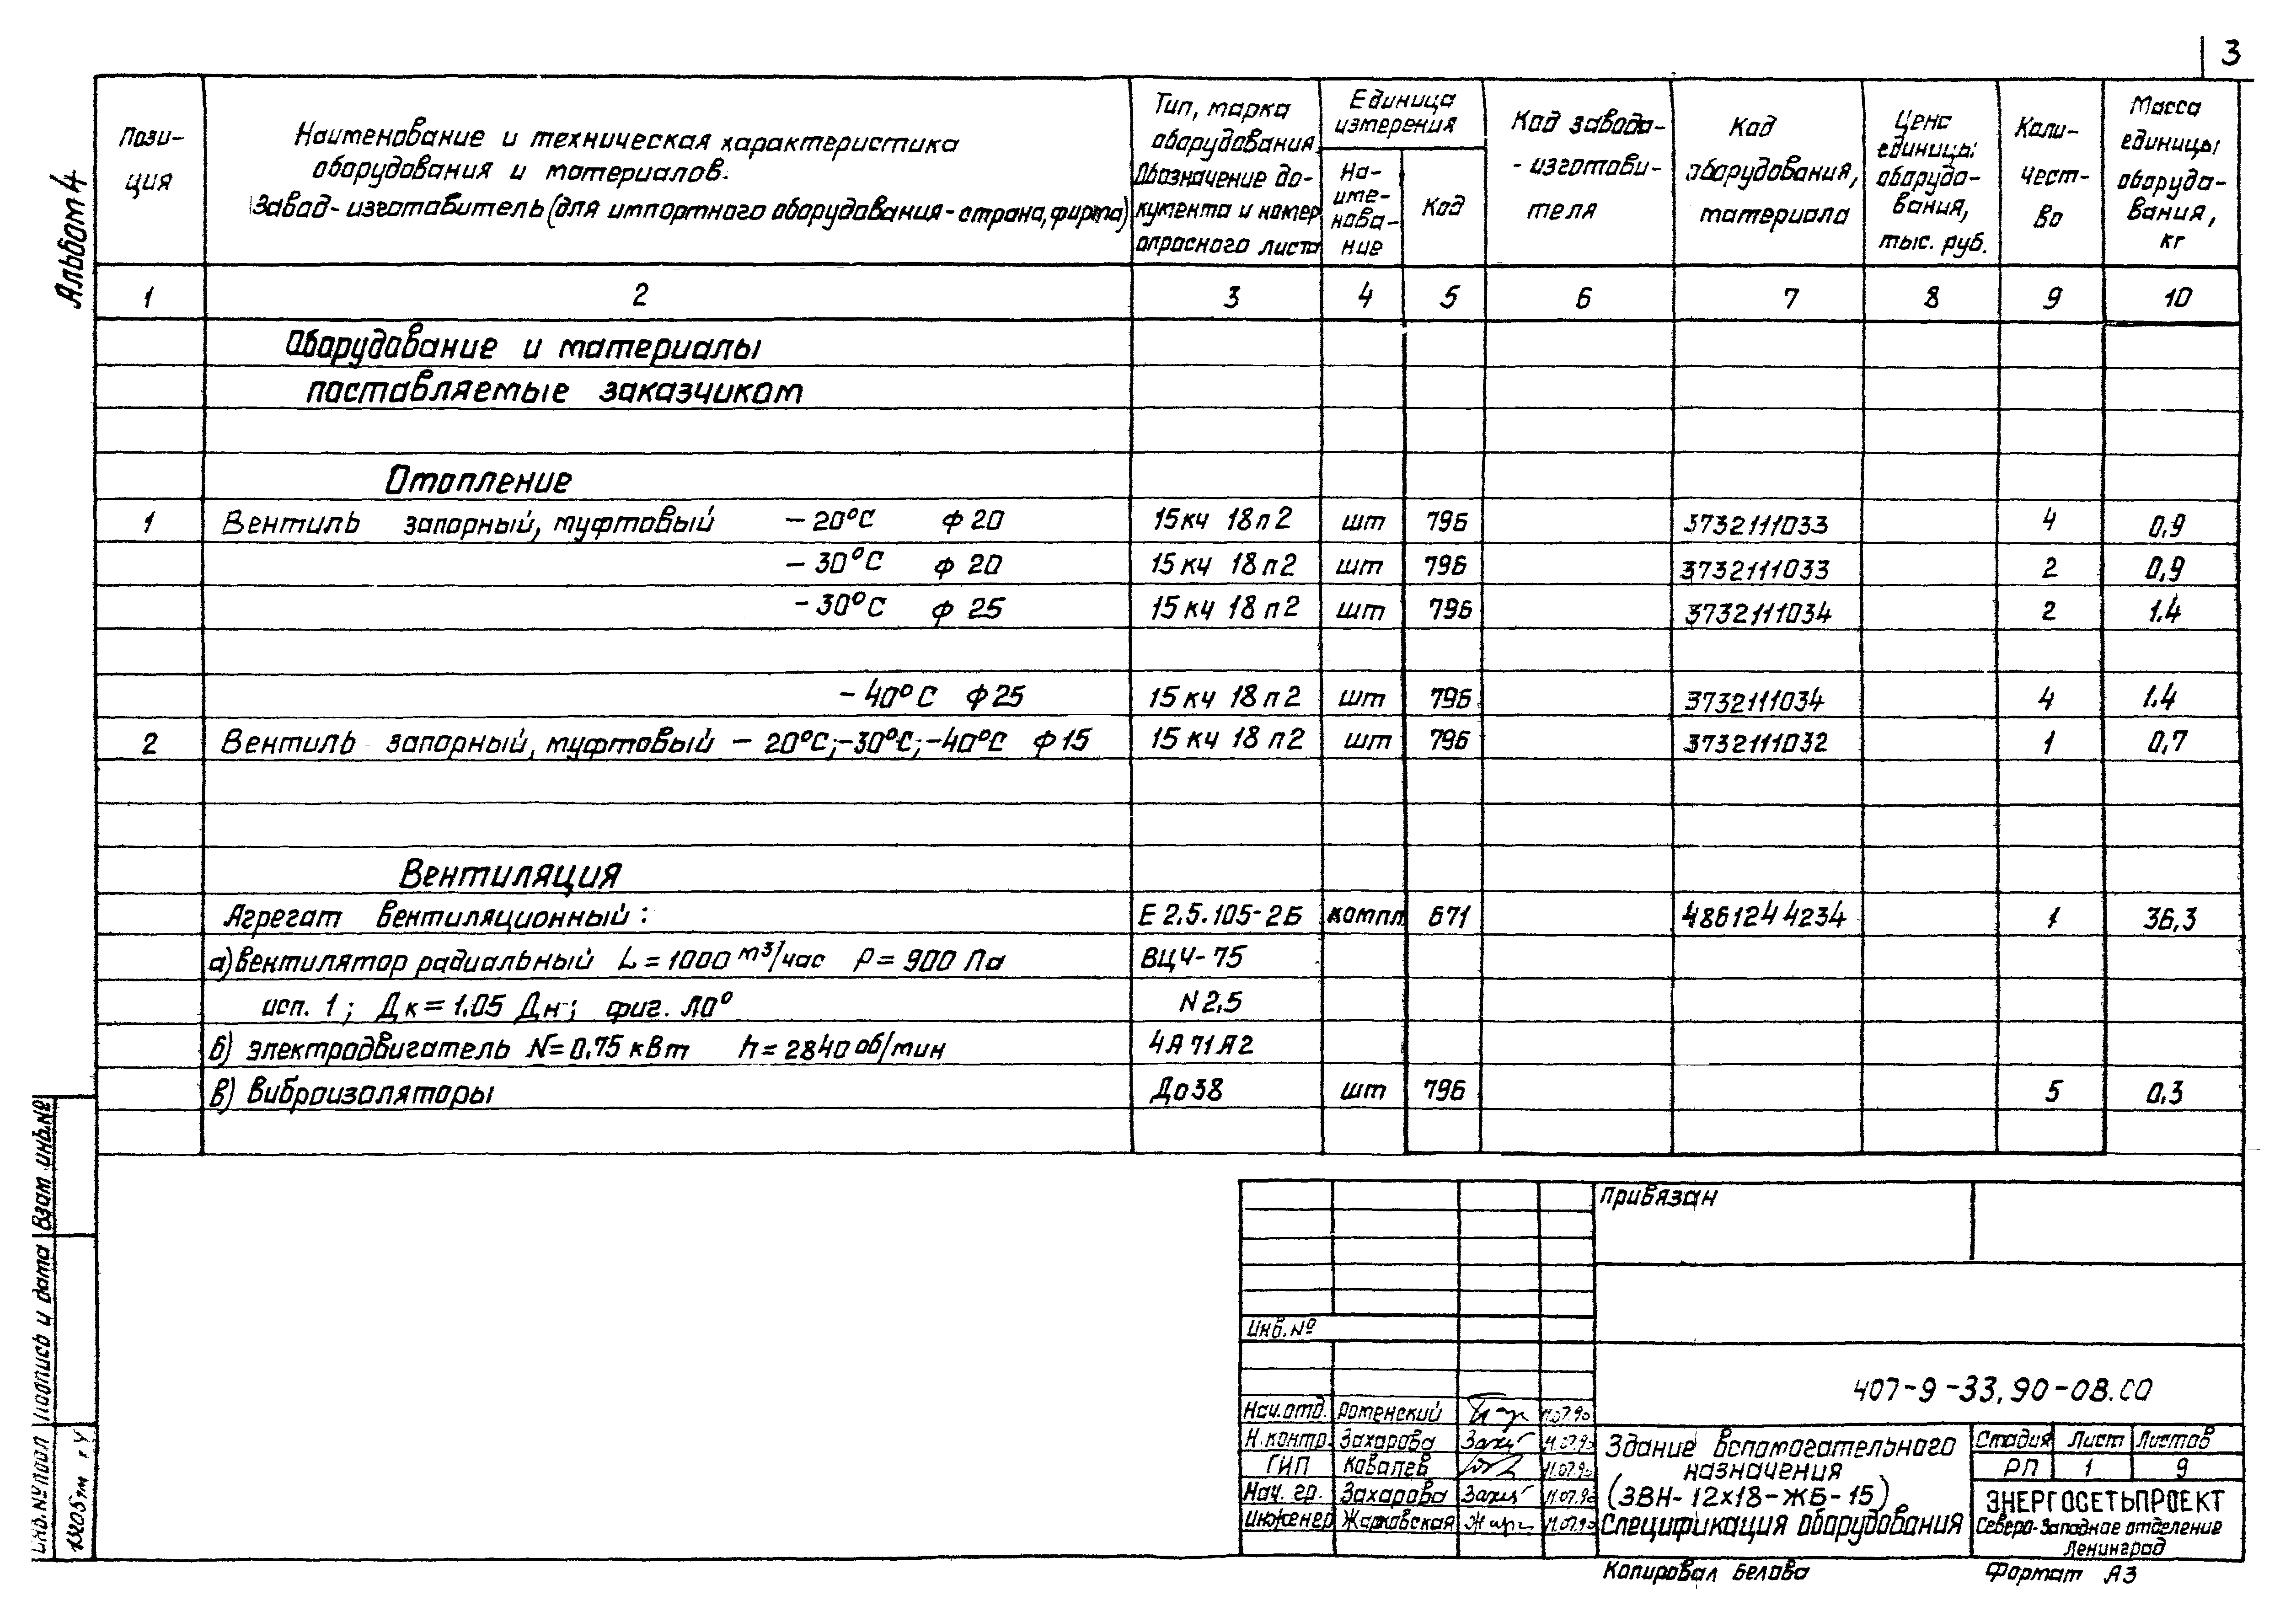 3
Альбом 4
Пози-
ция
Наименование и техническая характеристика
оборудования и материалов.
Завод-изготовитель (для импортного оборудования - страна, фирма)
Тип, марка
оборудования,
Обозначение до-
кумента и номер
опросного листа
Единица
измерения
На-
име-
нова-
ние
Код
Код завода-
- изготови-
теля
Код
оборудования,
материала
Цена
единицы
оборудо-
вания,
тыс. руб.
Коли-
чест-
во
Масса
единицы
оборудо-
вания,
кг
1 2 3 4 5 6 7 8 9 10
Оборудование и материалы
поставляемые заказчиком
Отопление
1 Вентиль запорный, муфтовый -20°С ф 20 15кч 18п2 шт 796 3732111033 4 0,9
-30°С ф 20 15кч 18п2 шт 796 3732111033 2 0,9
-30°С ф 25 15кч 18п2 шт 796 3732111034 2 1.4
-40°С ф 25 15кч 18п2 шт 796 3732111034 4 1.4
2 Вентиль запорный, муфтовый -20°С;-30°С;-40°С ф 15 15кч 18п2 шт 796 3732111032 1 0,7
Вентиляция
Агрегат вентиляционный: Е 2.5.105-2Б компл 671 4861244234 1 36,3
а) вентилятор радиальный L = 1000 м3/час Р = 900 Па ВЦ4-75
исп. 1; Дк = 1.05 Дн; фиг. Л0° N 2,5
б) электродвигатель N = 0,75 кВт n = 2840 об/мин 4А71А2
в) виброизоляторы До38 шт 796 5 0,3
Привязан
Инв. №
407-9-33.90-ОВ.СО
Нач.отд. Роменский 11.07.90
Н.контр. Захарова 11.07.90
ГИП Ковалев 11.07.90
Нач. гр. Захарова 11.07.90
инженер Жарковская 11.07.90
Здание вспомогательного
назначения
(ЗВН-12х18-ЖБ-15)
Спецификация оборудования
Стадия Лист Листов
РП 1 9
ЭНЕРГОСЕТЬПРОЕКТ
Северо-Западное отделение
Ленинград
Копировал Белова Формат А3
Взам инв.№
подпись и дата
Инв.№ подл
13205тм